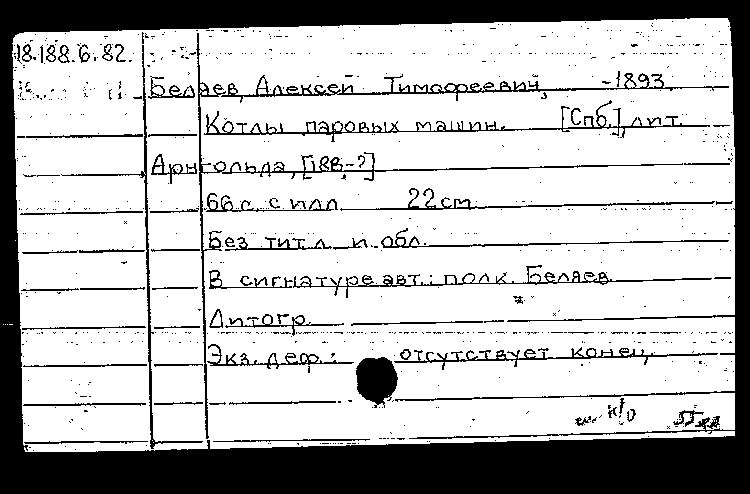 18.188.6.82.
Беляев, Алексей Тимофеевич, -1893
Котлы паровых машин. [Спб.], лит.
Арнгольда, [188-?]
66 с. с илл. 22 см
Без тит. л. и обл.
В сигнатуре авт.: полк. Беляев.
Литогр.
Экз. деф.: отсутствует конец.
к/о